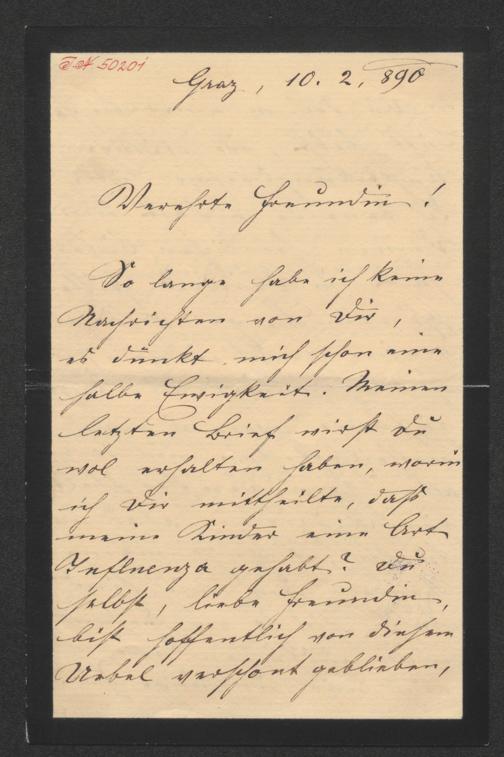 I.N. 50201
Graz, 10. 2. 890
Verehrte Freundin!
So lange habe ich keine
Nachrichten von Dir,
es dünkt mich schon eine
halbe Ewigkeit. Meinen
letzten Brief wirst Du
wol erhalten haben, worin
ich Dir mittheilte, daß
meine Kinder eine Art
Influenza gehabt? Du
selbst, liebe Freundin,
bist hoffentlich von diesem
Uebel verschont geblieben,